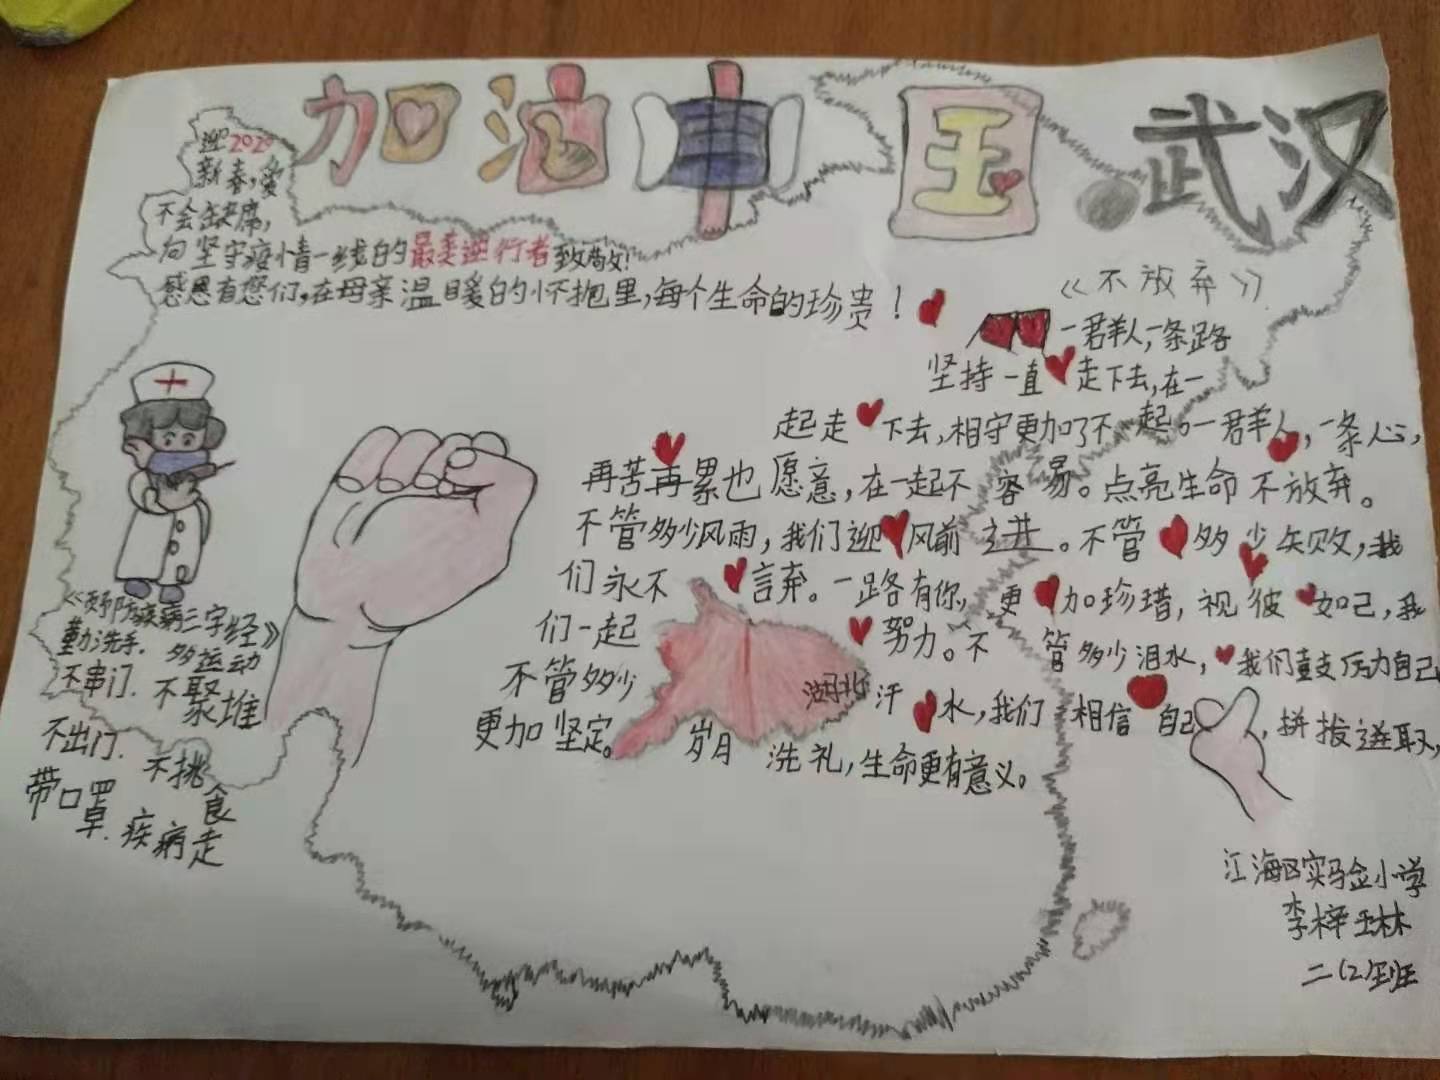 加油中国·武汉
迎2020
新春,爱
不会缺席,
向坚守疫情一线的最美逆行者致敬!
感恩有您们,在母亲温暖的怀抱里,每个生命的珍贵!
《不放弃》
一群人,一条路
坚持一直走下去,在一
起走下去,相守更加了不起。一群人,一条心,
再苦再累也愿意,在一起不容易。点亮生命不放弃。
不管多少风雨,我们迎风前进。不管多少失败,我
们永不言弃。一路有你,更加珍惜,视彼如己,我
们一起努力。不管多少泪水,我们鼓励自己
不管多少汗水,我们相信自己,拼搏进取,
更加坚定。岁月洗礼,生命更有意义。
湖北
《预防疾病三字经》
勤洗手.多运动
不串门.不聚堆
不出门.不挑食
带口罩.疾病走
江海区实验小学
李梓琳
二(2)班